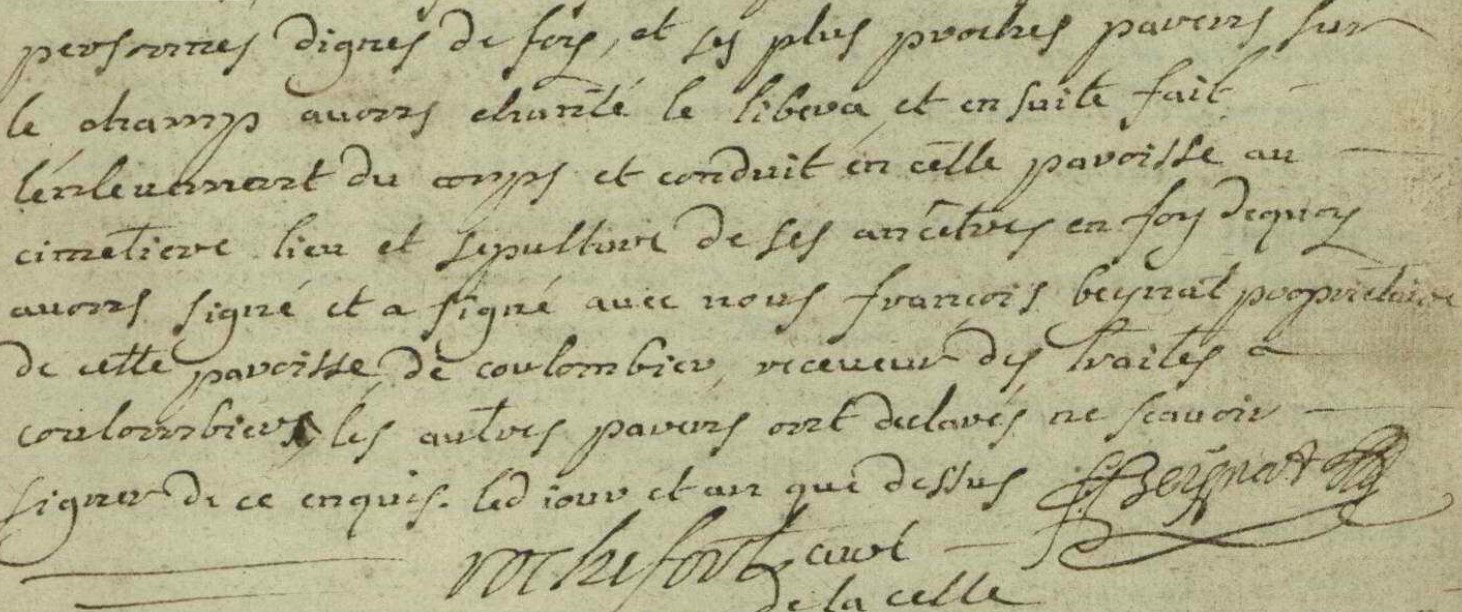 personnes dignes de foy, et ses plus proches parens sur
le champ avons chanté le libera, et ensuite fait
lénlevement du corps et conduit én célle paroisse au
cimetiere lieu et sepulture de ses ancêtres en foy dequoy
avons signé et a signé avec nous françois beynat proprietaire
de cette paroisse de coulombier, receveur des traites a
coulombier, les autres parens ont declarés ne scavoir
signer de ce enquis. led iour et an que dessus FBeÿnat
rochefort curé
de la celle